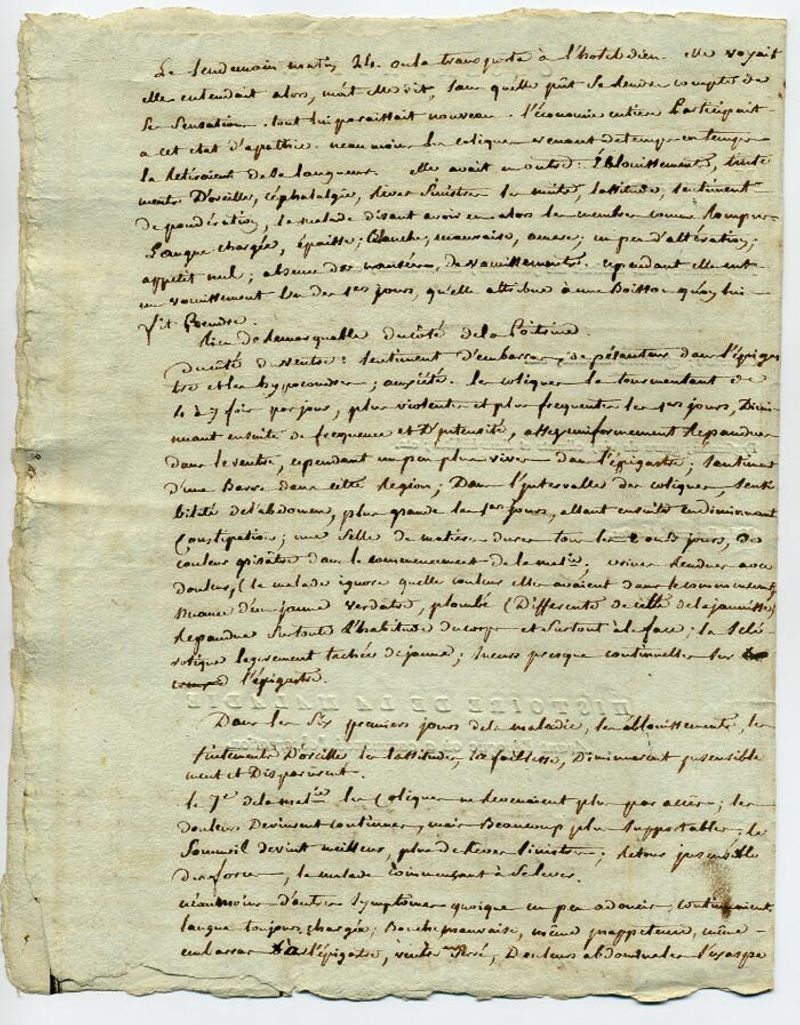 Le lendemain matin 24. on la transporta à l'hotel dieu. elle voyait
elle entendait alors, mais elle dit, sans qu'elle pût se rendre compte de
ses sensations. tout lui paraissait nouveau. l'économie entiere Participait
a cet etat d'apathie. neanmoins les coliques revenant de temps en temps
la retiraient de sa langueur. elle avait en outre: Éblouissements, tinte
ments D'oreille, céphalalgie, Rêves sinistres les nuits, lassitude, sentiment
de pondération, la malade disant avoir eu alors les membres comme Rompus
Langue chargée, épaisse; Blanche, mauvaise, amere; un peu d'altération;
appetit nul; absence de nausées, de vomissements. cependant elle eut
un vomissement l'un des 1ers jours, qu'elle attribue à une Boisson qu'on lui
fit Prendre.
Rien de Remarquable du côté de la Poitrine.
Du côté du ventre: sentiment d'embarras, de pésanteur dans l'épigas
tre et les hypocondres; anxiété. les coliques la tourmentant de
4 à 7 fois par jour, plus violentes et plus frequentes les 1ers jours, Dimi
nuant ensuite de frequence et D'intensité, assez uniformement Repandues
dans le ventre, cependant un peu plus vives dans l'épigastre; sentiment
d'une Barre dans cette Region; Dans l'intervalle des coliques, sensi
bilité de l'abdomen, plus grande les 1ers jours, allant ensuite en diminuant
Constipation; une selle de matières dures tous les 2 ou 3 jours, de
couleur grisâtre dans le commencement de la malie; urines Rendues avec
douleur, (la malade ignore quelle couleur elles avaient dans le commencemt)
Nuance d'un jaune verdatre, plombé (Differente de celle de la jaunisse)
Repandue sur toute l'habitude du corps et surtout à la face; la sclé
rotique legerement tachée de jaune; sueurs presque continuelles sur
l'épigastre.
Dans les six premiers jours de la maladie, les éblouissements, les
tintements D'oreille les lassitudes, la faiblesse, Diminuerent insensible
ment et Disparurent.
le 7e de la malie les Coliques ne Revenaient plus par accès; les
douleurs Devinrent continues, mais Beaucoup plus supportables; le
Sommeil devint meilleur, plus de Rêves sinistres; Retour insensible
des forces, la malade commençant à se lever.
néanmoins d'autres symptomes quoique un peu adoucis, continuaient
langue toujours chargée; Bouche mauvaise, même inappetence, même
embarras à l'épigastre, ventre Serré, Douleurs abdominales s'exaspe